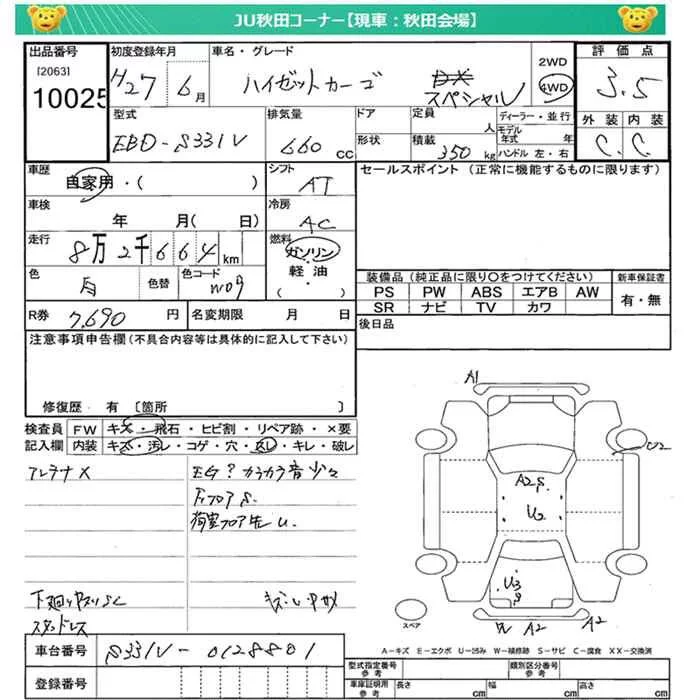 JU秋田コーナー【現車：秋田会場】
出品番号
[2063]
10025
初度登録年月
H27 6月
車名・グレード
ハイゼットカーゴ
スペシャル
2WD
4WD
評価点
3.5
型式
EBD-S331V
排気量
660 cc
ドア
形状
定員
人
積載
350 kg
ディーラー・並行
モデル年式 年
ハンドル 左・右
外装 内装
C. C.
車歴
自家用・( )
シフト
AT
セールスポイント (正常に機能するものに限ります)
車検
年 月( 日)
冷房
AC
走行
8万2千664km
燃料
ガソリン
軽油
( )
色
白
色替
色コード
W09
装備品 (純正品に限り〇をつけてください)
PS PW ABS エアB AW
SR ナビ TV カワ
新車保証書
有・無
R券
7,690 円
名変期限 月 日
後日品
注意事項申告欄 (不具合内容等は具体的に記入して下さい)
修復歴・有 〔箇所 〕
検査員記入欄
FW キズ・飛石・ヒビ割・リペア跡・×要
内装 キズ・汚レ・コゲ・穴・スレ・キレ・破レ
アンテナX
EG?カラカラ音少々
フロアS.
荷室フロア先U.
下廻りサスリSC
スタッドレス
A1
U2
A2S.
U2
U3
S
W A2 A2
スペア
A-キズ E-エクボ U-凹み W-補修跡 S-サビ C-腐食 XX-交換済
車台番号
S331V-0128801
登録番号
型式指定番号
参考
類別区分番号
参考
車庫証明用
参考
長さ cm
幅 cm
高さ cm